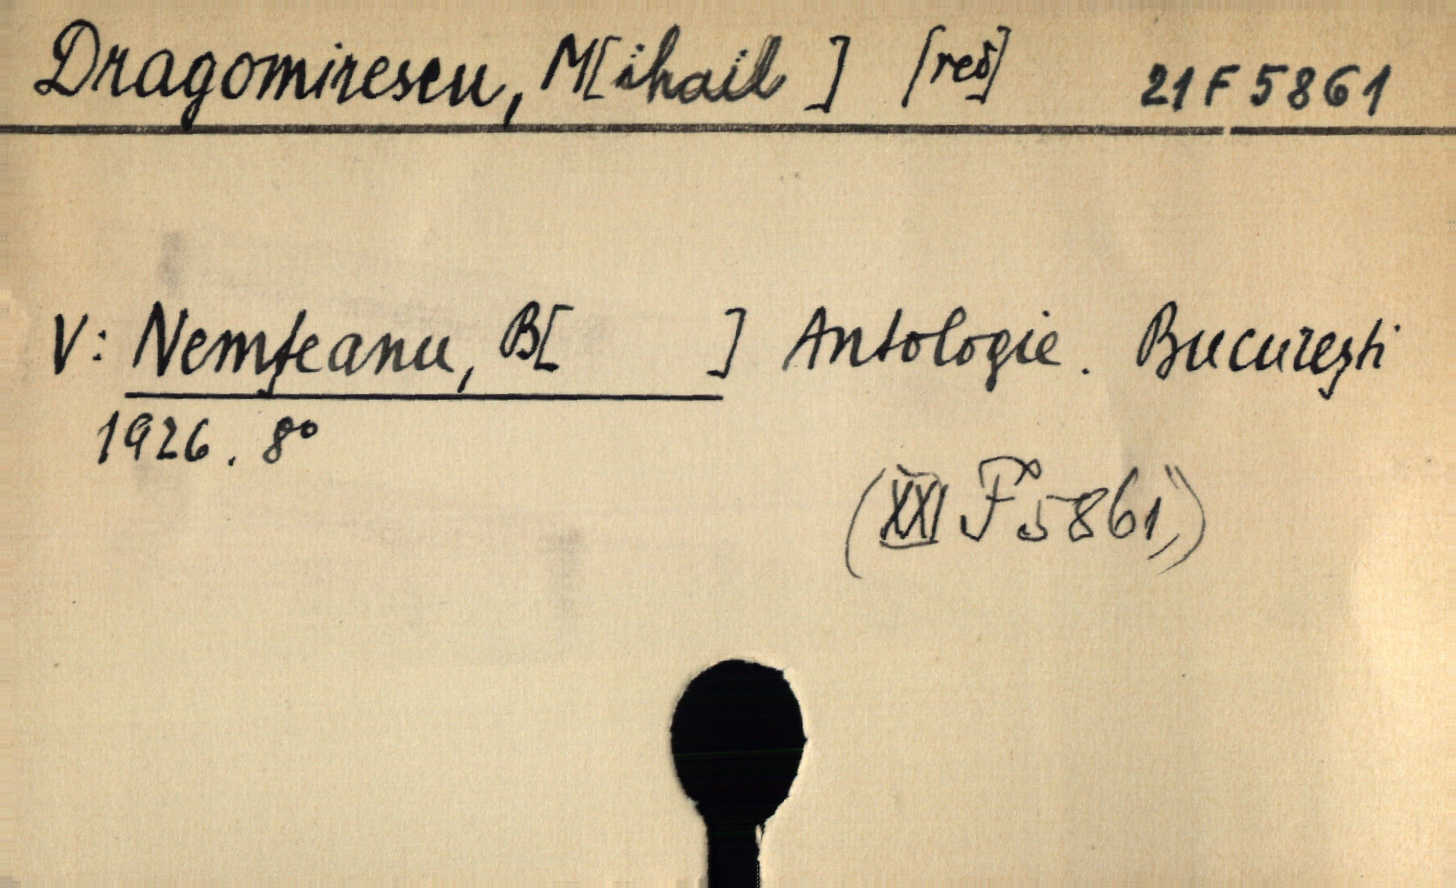 Dragomirescu, M[ihail ] [red] 21 F 5861
V: Nemţeanu, B[ ] Antologie. Bucureşti
1926. 8°
(XXI F 5861,)